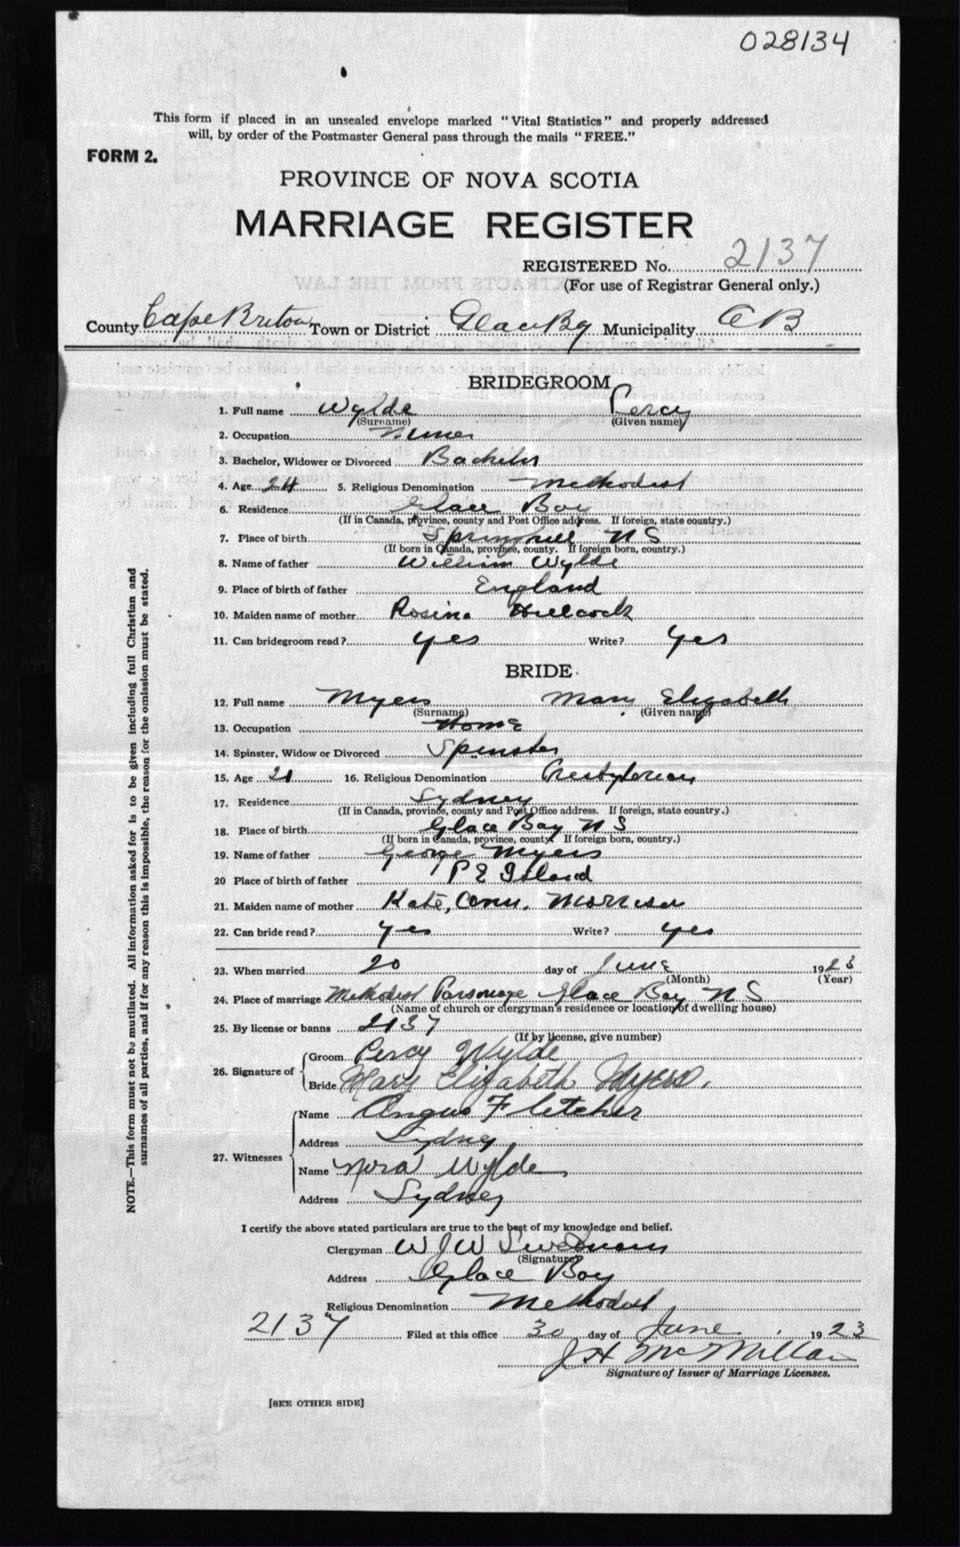 028134
This form if placed in an unsealed envelope marked "Vital Statistics" and properly addressed
will, by order of the Postmaster General pass through the mails "FREE."
FORM 2.
PROVINCE OF NOVA SCOTIA
MARRIAGE REGISTER
REGISTERED No. 2137
(For use of Registrar General only.)
County Cape Breton Town or District Glace By Municipality CB
BRIDEGROOM
1. Full name Wylde Percy
(Surname) (Given name)
2. Occupation Miner
3. Bachelor, Widower or Divorced Bachelor
4. Age 24 5. Religious Denomination Methodist
6. Residence Glace Bay
(If in Canada, province, county and Post Office address. If foreign, state country.)
7. Place of birth Springhill N S
(If born in Canada, province, county. If foreign born, country.)
8. Name of father William Wylde
9. Place of birth of father England
10. Maiden name of mother Rosina
11. Can bridegroom read? yes Write? Yes
BRIDE
12. Full name Myers Mary Elizabeth
(Surname) (Given name)
13. Occupation Home
14. Spinster, Widow or Divorced Spinster
15. Age 21 16. Religious Denomination Presbyterian
17. Residence Sydney
(If in Canada, province, county and Post Office address. If foreign, state country.)
18. Place of birth Glace Bay N S
(If born in Canada, province, county. If foreign born, country.)
19. Name of father George Myers
20 Place of birth of father P E Island
21. Maiden name of mother Kate, Morrison
22. Can bride read? yes Write? yes
23. When married 20 day of June 1923
(Month) (Year)
24. Place of marriage Methodist Parsonage Glace Bay N S
(Name of church or clergyman's residence or location of dwelling house)
25. By license or banns 2137
(If by license, give number)
26. Signature of
Groom Percy Wylde
Bride Mary Elizabeth Myers.
27. Witnesses
Name Angus Fletcher
Address Sydney
Name Nora Wylde
Address Sydney
I certify the above stated particulars are true to the best of my knowledge and belief.
Clergyman W J W
(Signature)
Address Glace Bay
Religious Denomination Methodist
2137 Filed at this office 30 day of June 1923
J H McMillan
Signature of Issuer of Marriage Licenses.
[SEE OTHER SIDE]
NOTE.—This form must not be mutilated. All information asked for is to be given including full Christian and
surnames of all parties, and if for any reason this is impossible, the reason for the omission must be stated.